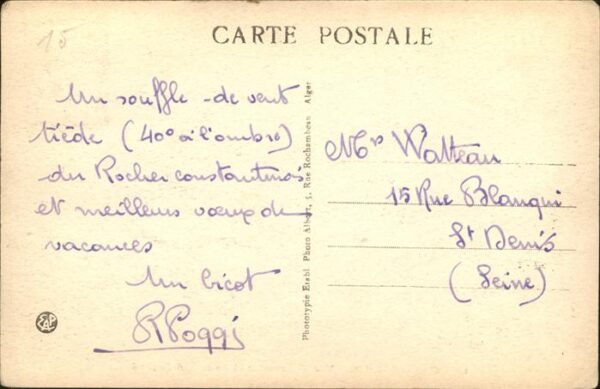 15
CARTE POSTALE
Un souffle de vent
tiède (40° à l'ombre)
du Rocher constantinois
et meilleurs vœux de
vacances
Un bicot
R Poggi
Phototypie Etabl. Photo Albert, 5, Rue Rochambeau Alger
Mrs Watteau
15 Rue Blanqui
St Denis
(Seine)